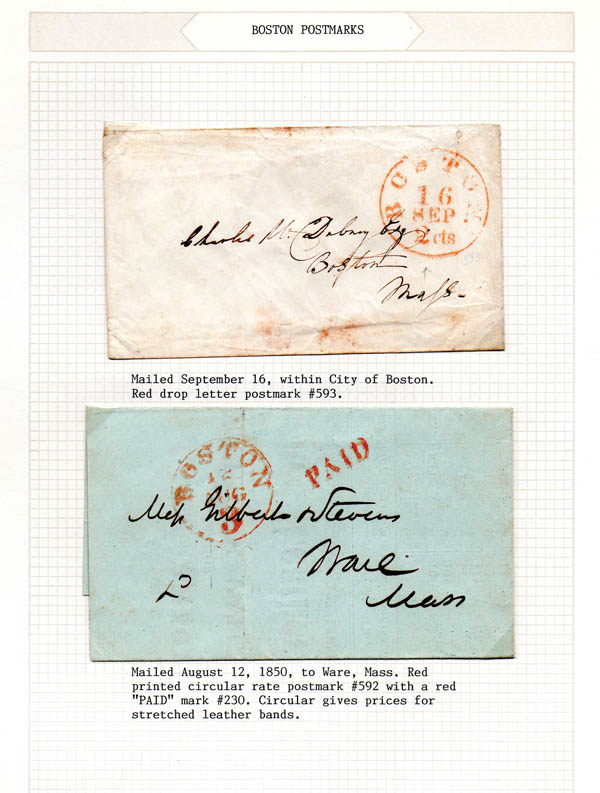 BOSTON POSTMARKS
BOSTON
16
SEP
2 cts
Charles W. Dabney Esq
Boston
Mass.
593
Mailed September 16, within City of Boston.
Red drop letter postmark #593.
BOSTON
12
AUG
3
PAID
Mess Gilberts & Stevens
Ware
Mass
Mailed August 12, 1850, to Ware, Mass. Red
printed circular rate postmark #592 with a red
"PAID" mark #230. Circular gives prices for
stretched leather bands.